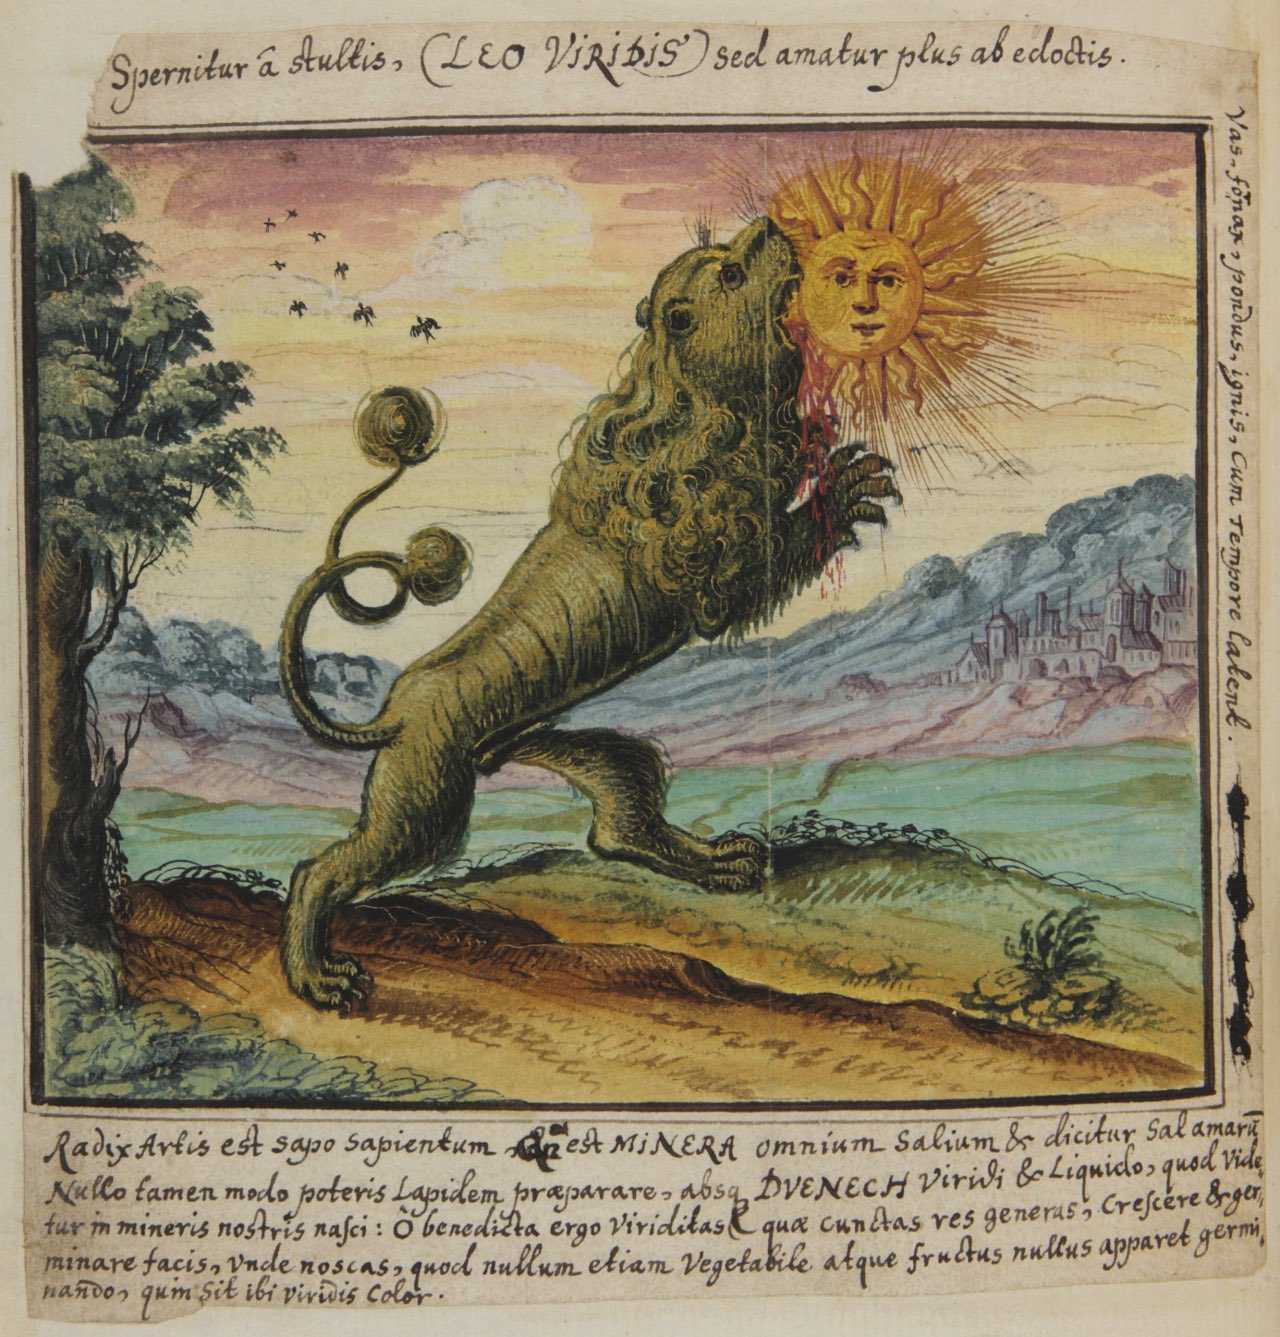 Spernitur â stultis, (LEO VIRIDIS) sed amatur plus ab edoctis.
Vas, fornax, pondus, ignis, Cum Tempore latent.
Radix Artis est sapo sapientum, est MINERA omnium Salium & dicitur Sal amarũ
Nullo tamen modo poteris Lapidem præparare, absq DVENECH Viridi & Liquido, quod Vide,
tur in mineris nostris nasci: Ò benedicta ergo Viriditas quæ cunctas res generas, Crescere & ger,
minare facis, vnde noscas, quod nullum etiam Vegetabile atque fructus nullus apparet germi,
nando, quin Sit ibi viridis Color.